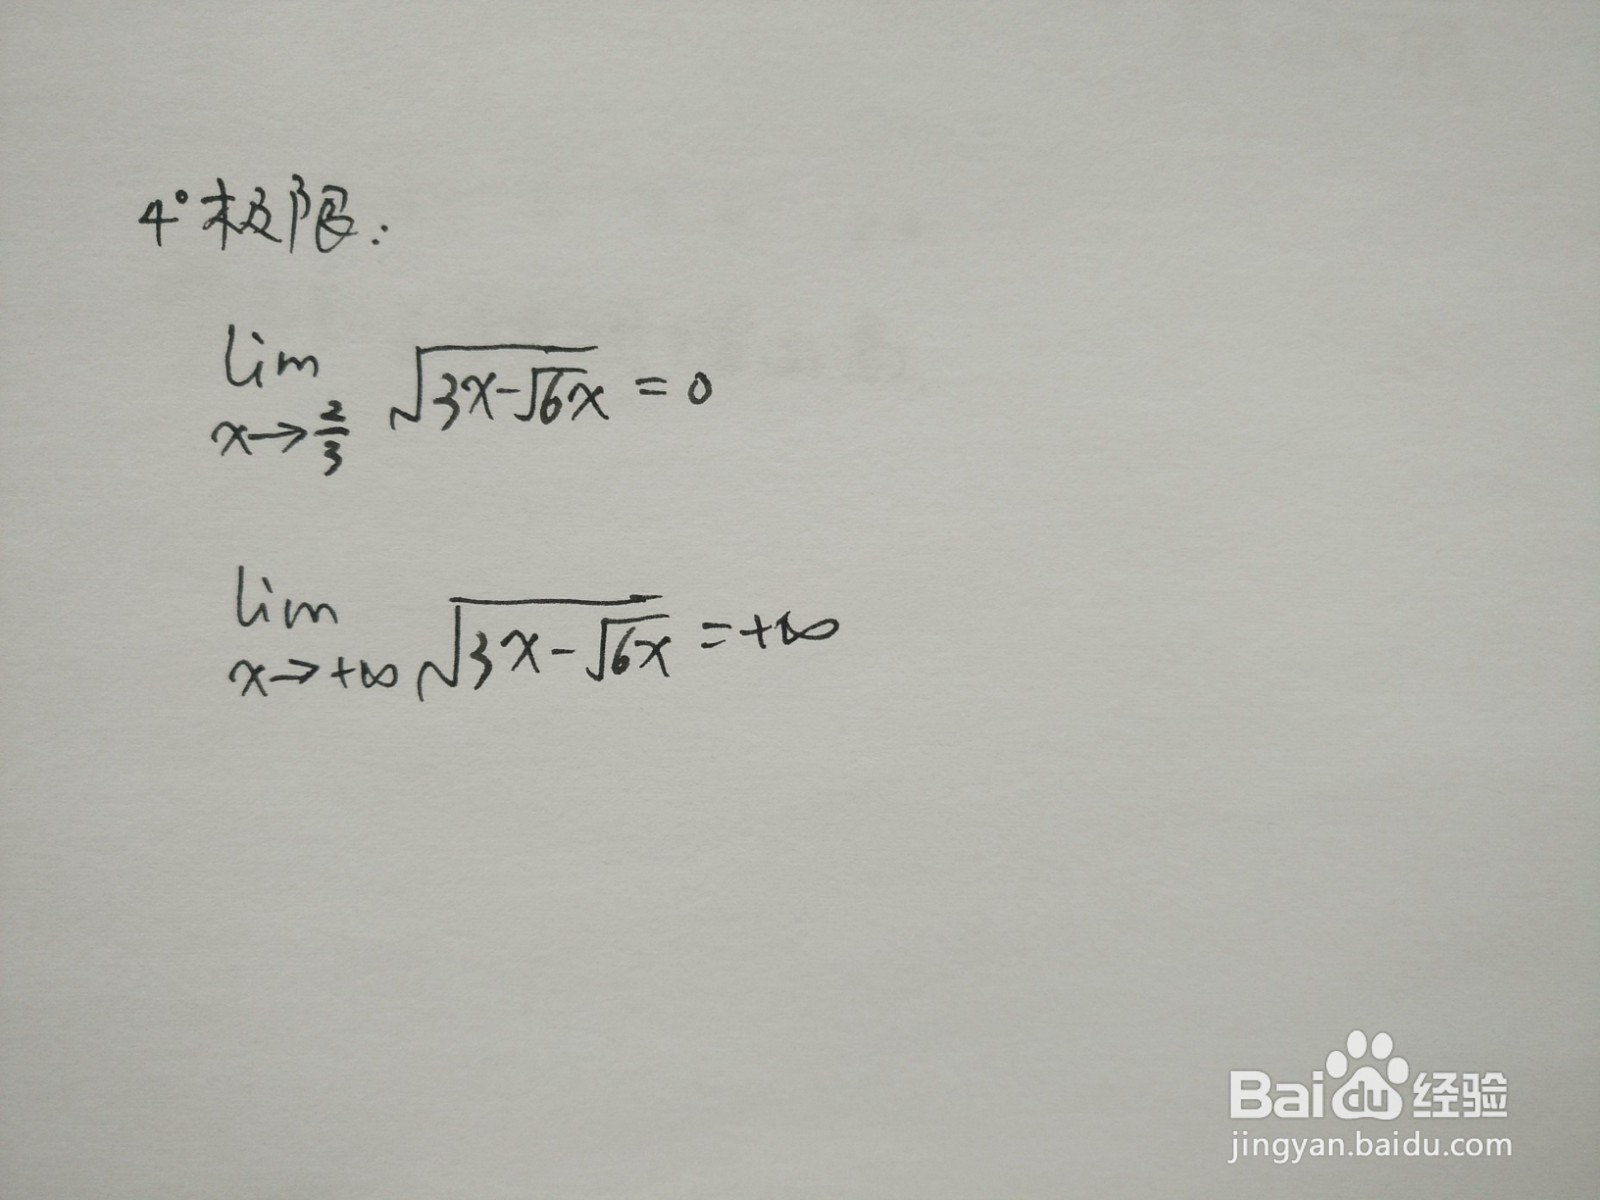 4°极限:
lim x→2/3 √(3x-√6x) = 0
lim x→+∞ √(3x-√6x) = +∞
Baidu经验
jingyan.baidu.com